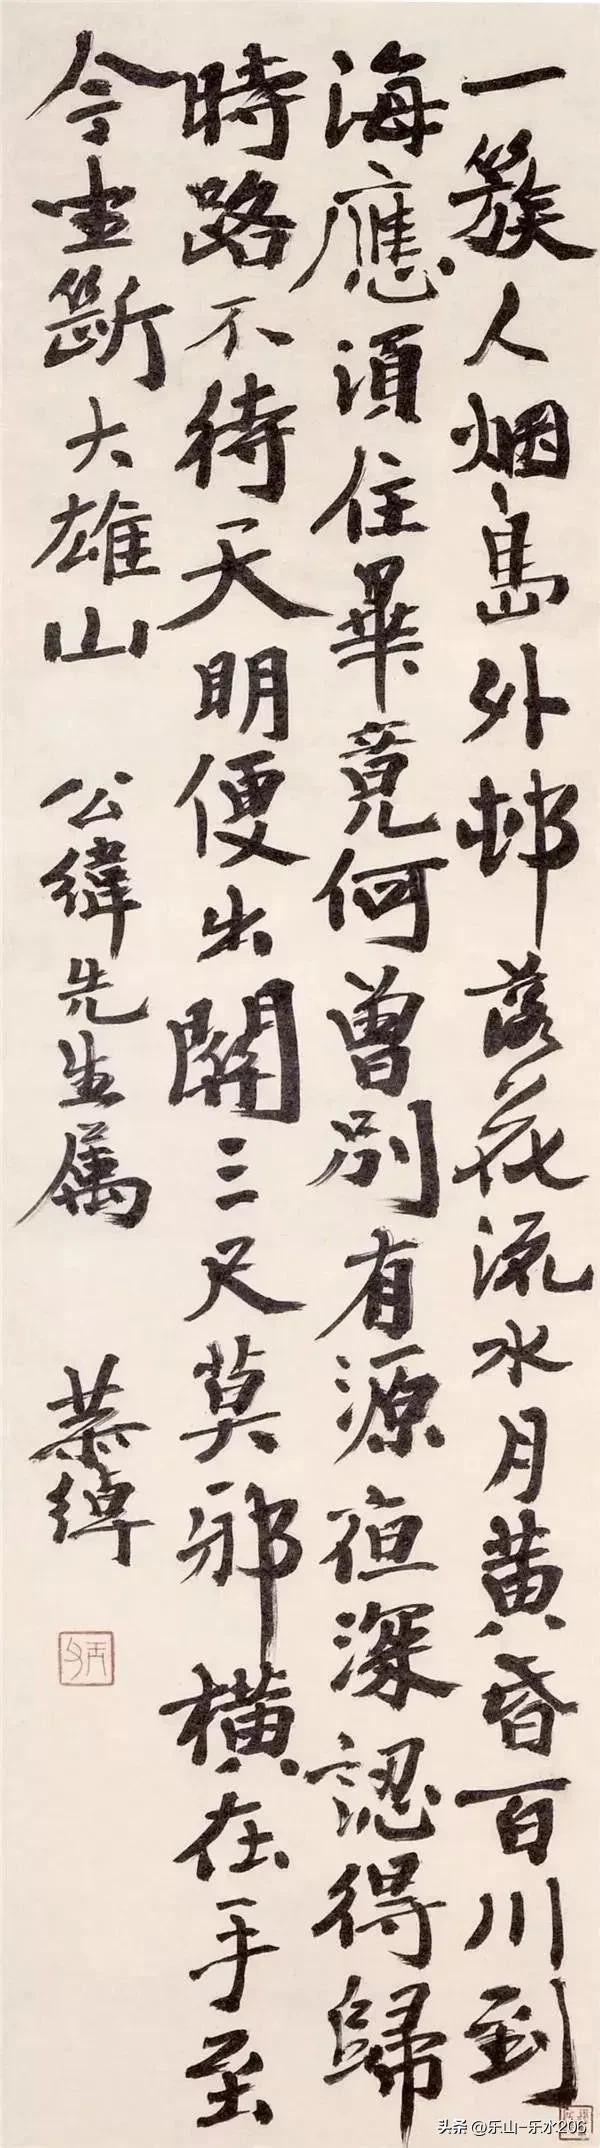 一簇人烟島外邨落花流水月黄昏百川到
海應須住畢竟何曾別有源夜深認得歸
時路不待天明便出關三尺莫邪橫在手至
今坐斷大雄山
公緯先生属
慕韓
头条 @乐山-乐水206